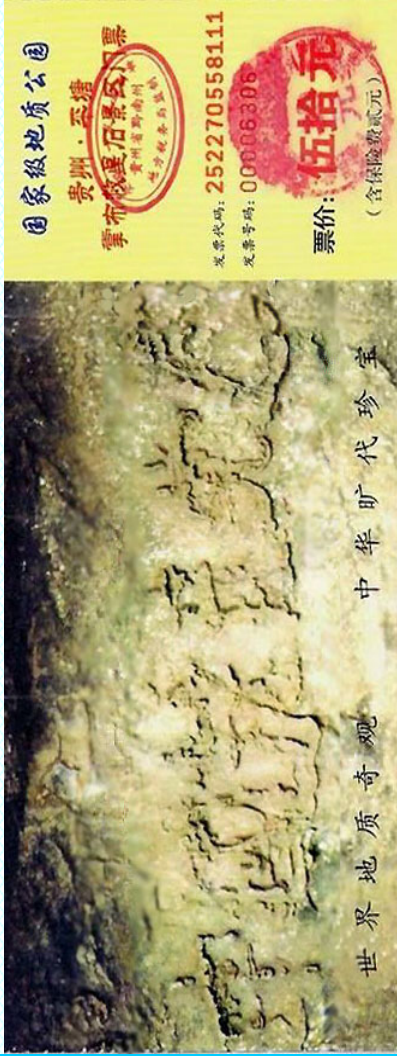 国家级地质公园
贵州·平塘
掌布救星石景区门票
贵州省黔南州
地方税务局监制
发票代码: 252270558111
发票号码: 00006306
票价: 伍拾元
(含保险费贰元)
中國共產黨亡
世界地质奇观 中华旷代珍宝